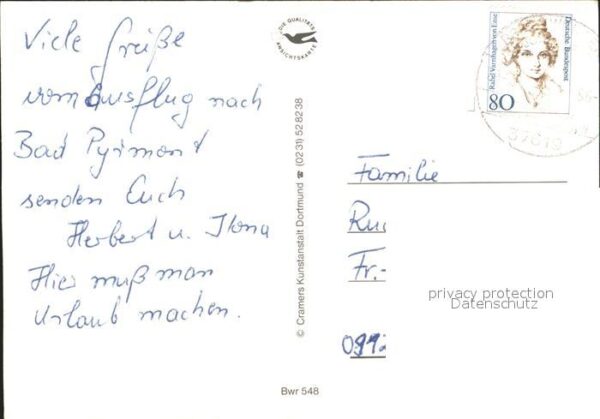 Viele Grüße
vom Ausflug nach
Bad Pyrmont
senden Euch
Herbert u. Ilona
Hier muß man
Urlaub machen.
DIE QUALITÄTS
ANSICHTSKARTE
© Cramers Kunstanstalt Dortmund ☎ (0231) 528238
Bwr 548
Rahel Varnhagen von Ense
Deutsche Bundespost
80
Familie
Fr.-
privacy protection
Datenschutz